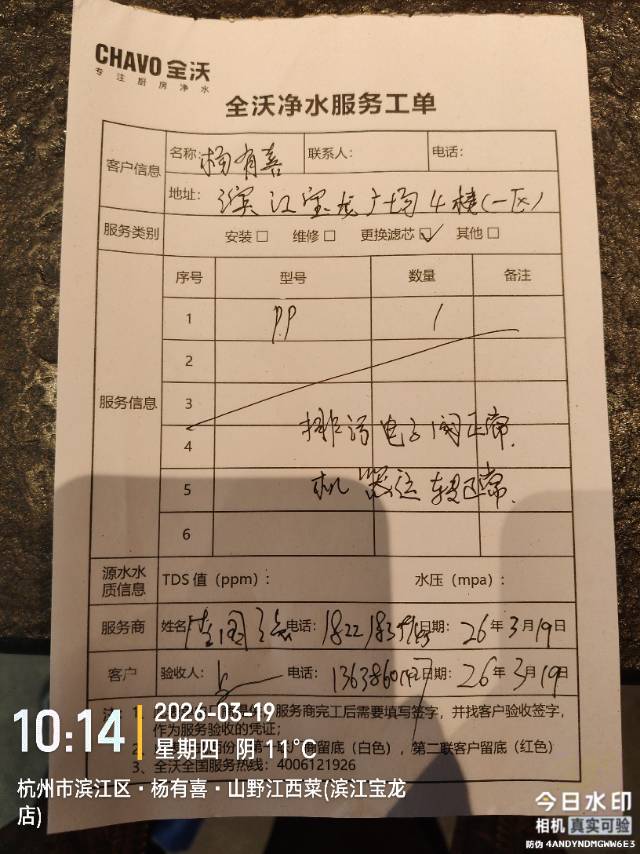 CHAVO 全沃
专注厨房净水
全沃净水服务工单
客户信息 名称: 杨有喜 联系人: 电话:
地址: 滨江宝龙广场4楼(一区)
服务类别 安装 □ 维修 □ 更换滤芯 ☑ 其他 □
服务信息 序号 型号 数量 备注
1 P.P 1
2
3
4 排污电子阀正常.
5 机器运转正常.
6
源水水质信息 TDS 值 (ppm): 水压 (mpa):
服务商 姓名 电话: 日期: 26年3月19日
客户 验收人: 电话: 日期: 26年3月19日
服务商完工后需要填写签字,并找客户验收签字,
作为服务验收的凭证;
留底(白色),第二联客户留底(红色)
3、全沃全国服务热线: 4006121926
10:14
2026-03-19
星期四 阴 11°C
杭州市滨江区·杨有喜·山野江西菜(滨江宝龙店)
今日水印
相机 真实可验
防伪 4ANDYNDMGWW6E3